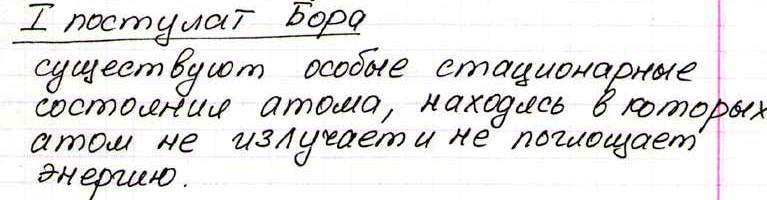 I постулат Бора
существуют особые стационарные
состояния атома, находясь в которых
атом не излучает и не поглощает
энергию.